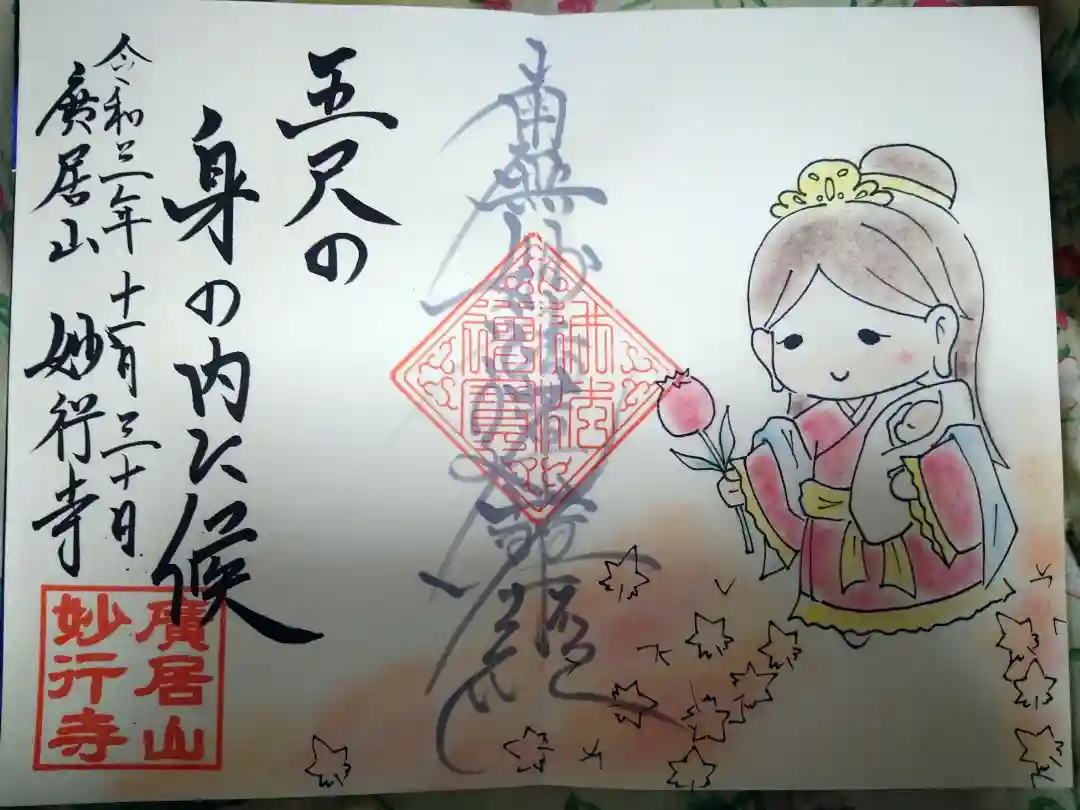 五尺の
身の内に候
令和三年 十一月 三十日
廣居山 妙行寺
南無妙法蓮華経
廣居山
妙行寺
佛法
僧寳